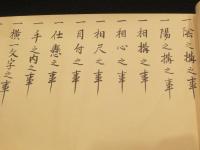 一陰之搆之事
一陽之搆之事
一相搆之事
一相心之事
一相尺之事
一目付之事
一仕懸之事
一手之内之事
一横一文字之事